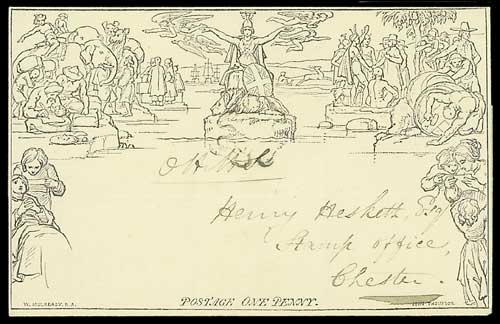 Henry Hesketh, Esq
Stamp office,
Chester.
W. MULREADY, R.A.
POSTAGE ONE PENNY.
JOHN THOMPSON